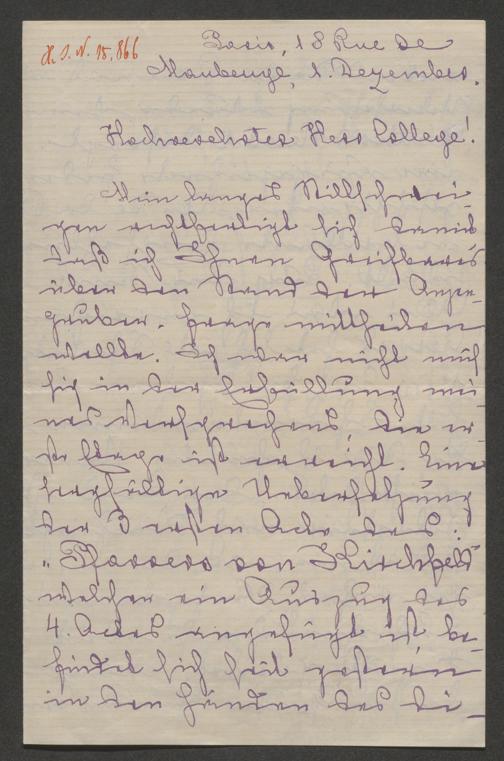 H. I. N. 15,866
Paris, 18 Rue de
Maubeuge, 1. Dezember.
Hochverehrter Herr College!
Mein langes Stillschwei-
gen rechtfertigt sich damit
daß ich Ihnen Greifbares
über den Stand der Anzen-
gruber-Frage mittheilen
wollte. Ich war nicht müs-
sig in der Erfüllung mei-
nes Versprechens, die er-
ste Etape ist erreicht. Eine
sorgfältige Uebersetzung
der 3 ersten Acte des:
"Pfarrers von Kirchfeld"
welcher ein Auszug des
4. Actes angefügt ist, be-
findet sich seit gestern
in den Händen des Di-